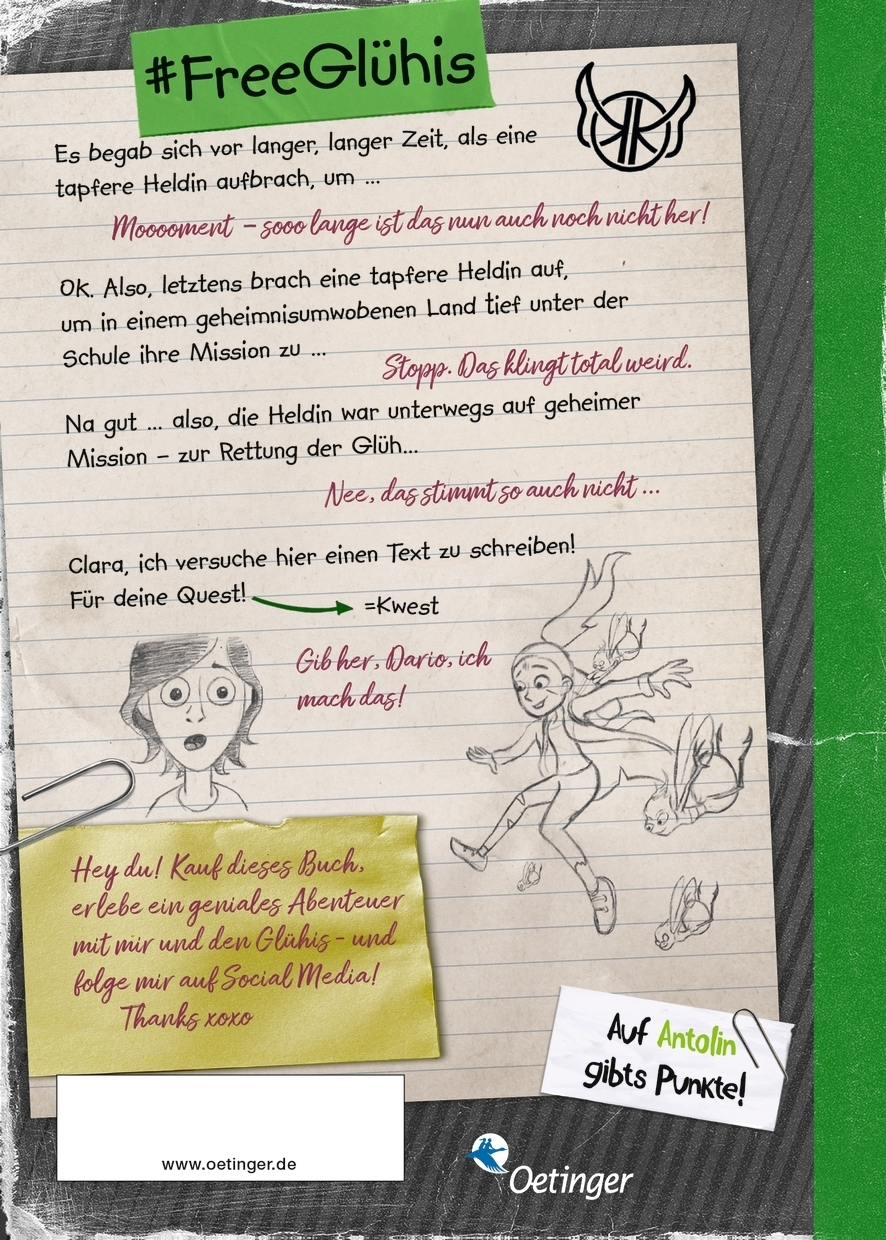 #FreeGlühis
Es begab sich vor langer, langer Zeit, als eine
tapfere Heldin aufbrach, um ...
Mooooment – sooo lange ist das nun auch noch nicht her!
OK. Also, letztens brach eine tapfere Heldin auf,
um in einem geheimnisumwobenen Land tief unter der
Schule ihre Mission zu ...
Stopp. Das klingt total weird.
Na gut ... also, die Heldin war unterwegs auf geheimer
Mission – zur Rettung der Glüh...
Nee, das stimmt so auch nicht ...
Clara, ich versuche hier einen Text zu schreiben!
Für deine Quest!
=Kwest
Gib her, Dario, ich
mach das!
Hey du! Kauf dieses Buch,
erlebe ein geniales Abenteuer
mit mir und den Glühis – und
folge mir auf Social Media!
Thanks xoxo
Auf Antolin
gibts Punkte!
www.oetinger.de
Oetinger